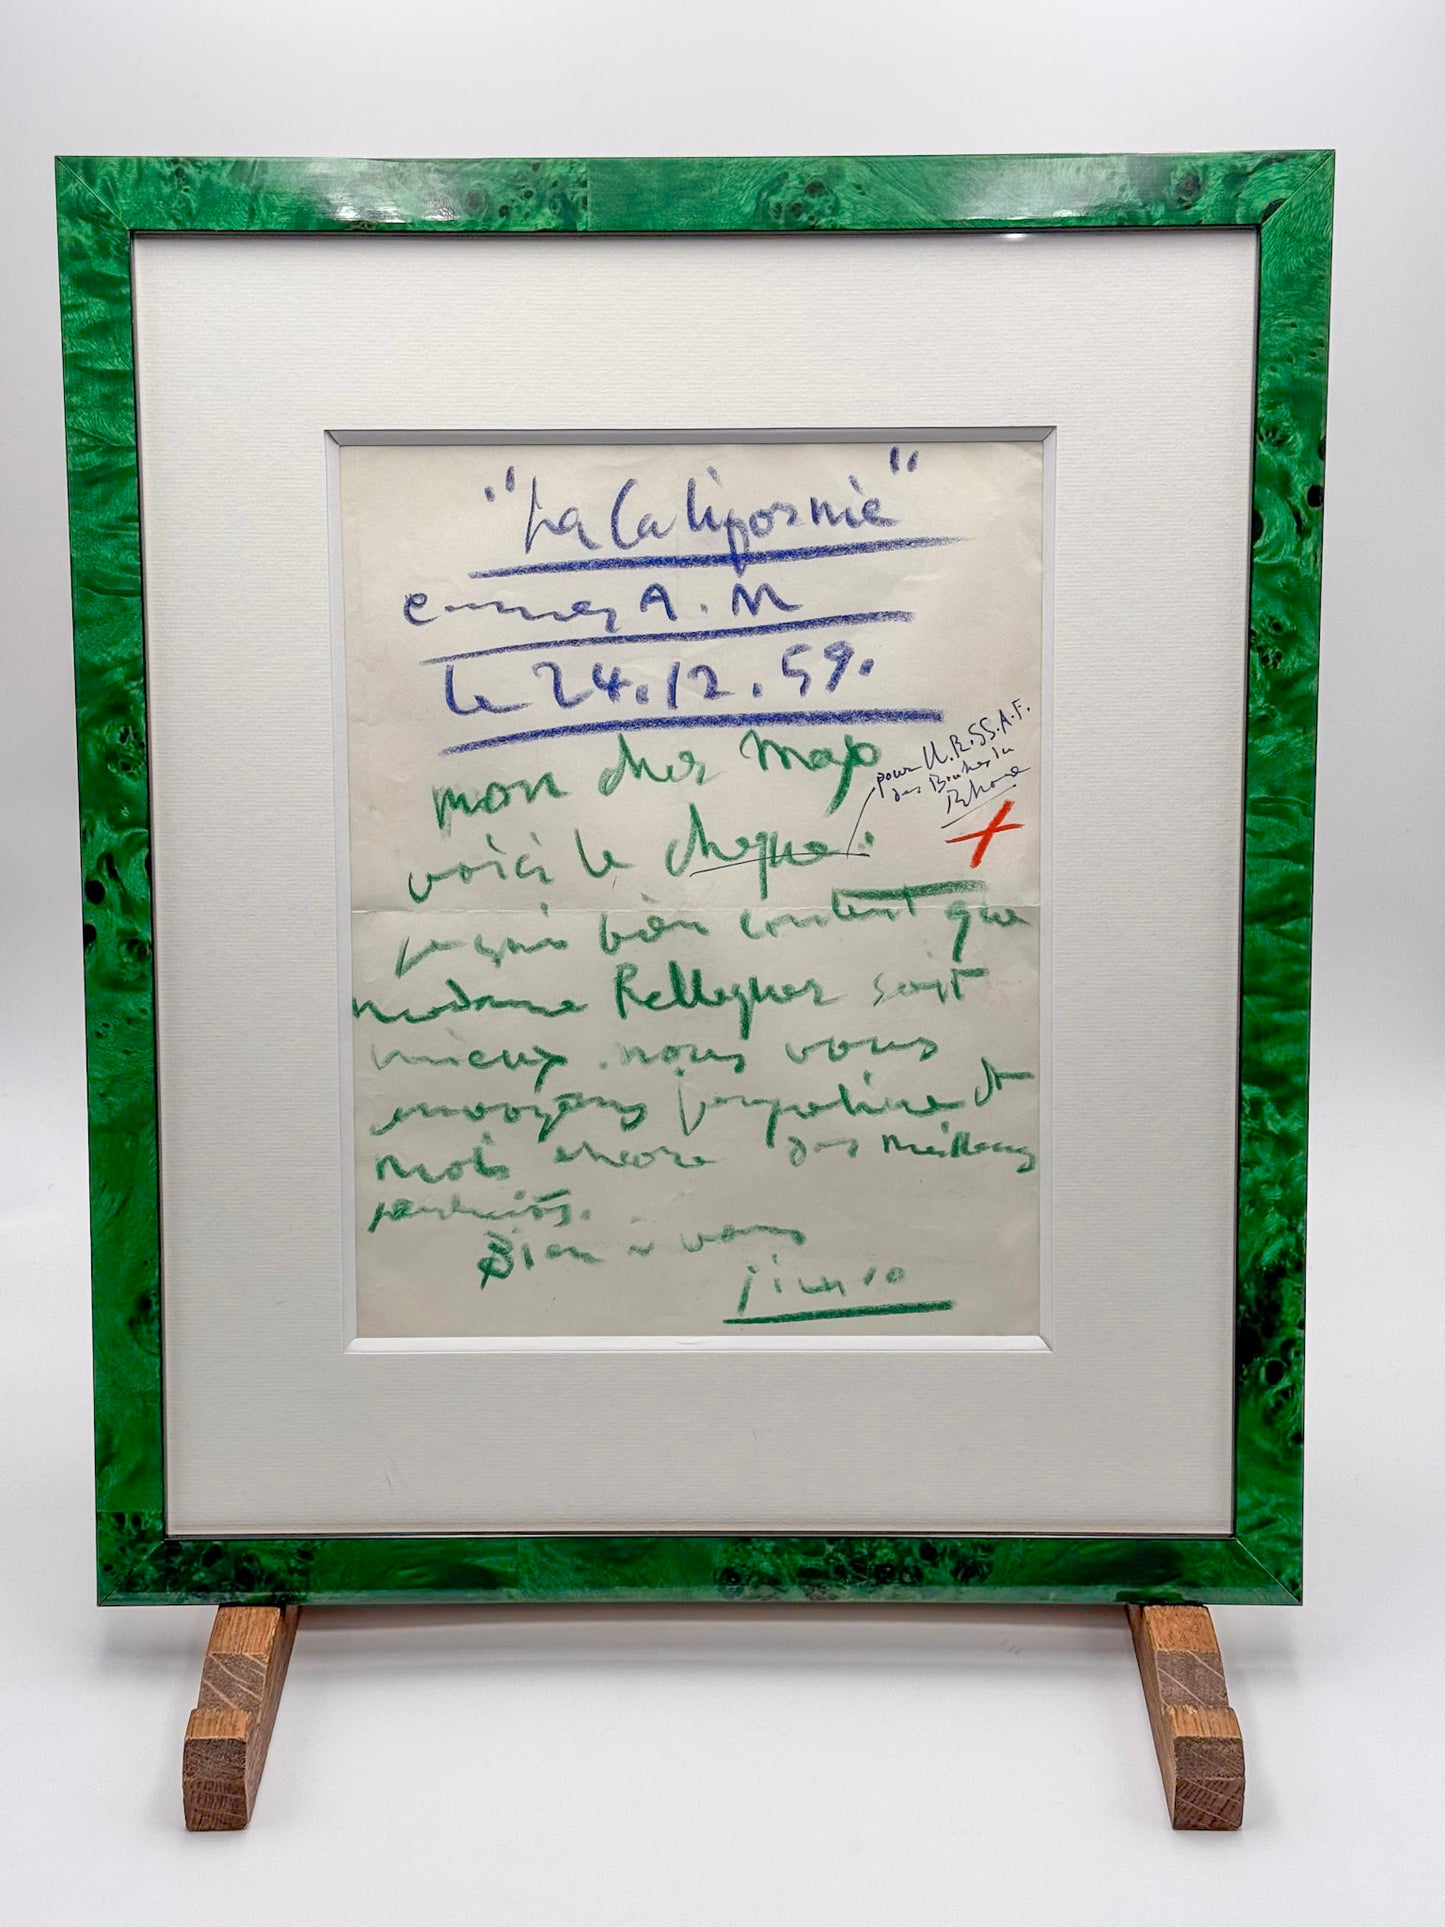 "La Californie"
Cannes A.M
le 24.12.59.
mon cher Max
pour U.R.SS.A.F.
des Bouches du
Rhone
voici le cheque:
je suis bien content que
madame Pellequer soit
mieux. nous vous
envoyons Jacqueline et
moi encore des meilleurs
souhaits.
Bien a vous
Picasso